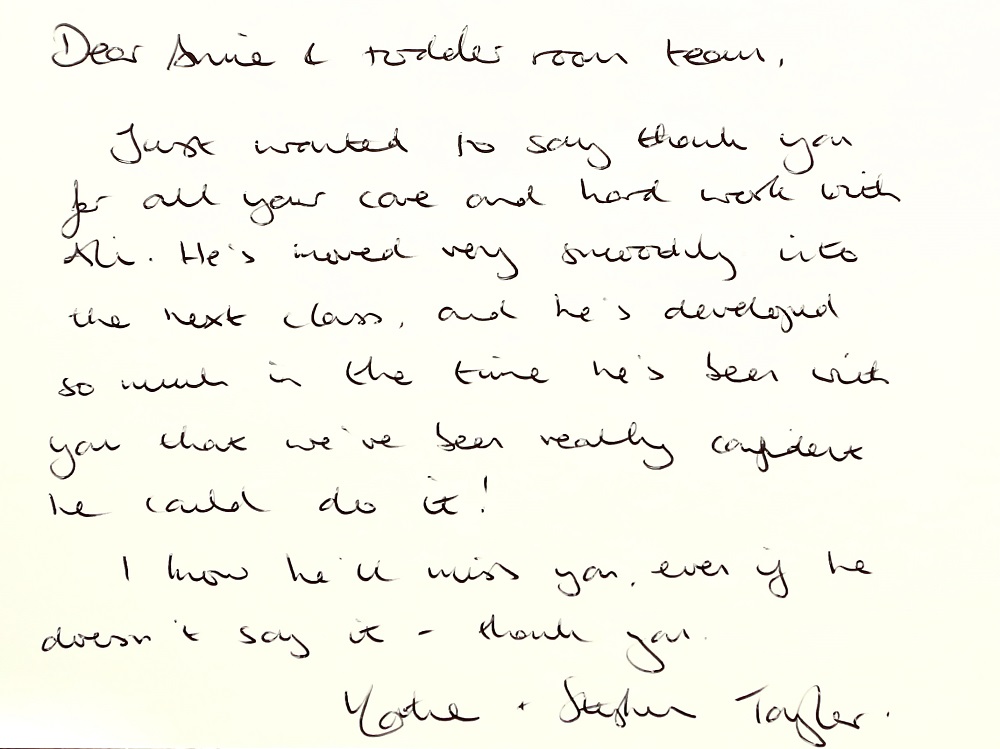 Dear Annie & toddler room team,
Just wanted to say thank you
for all your care and hard work with
Ali. He's moved very smoothly into
the next class, and he's developed
so much in the time he's been with
you that we've been really confident
he could do it!
I know he'll miss you, even if he
doesn't say it - thank you.
+ Stephen Taylor.